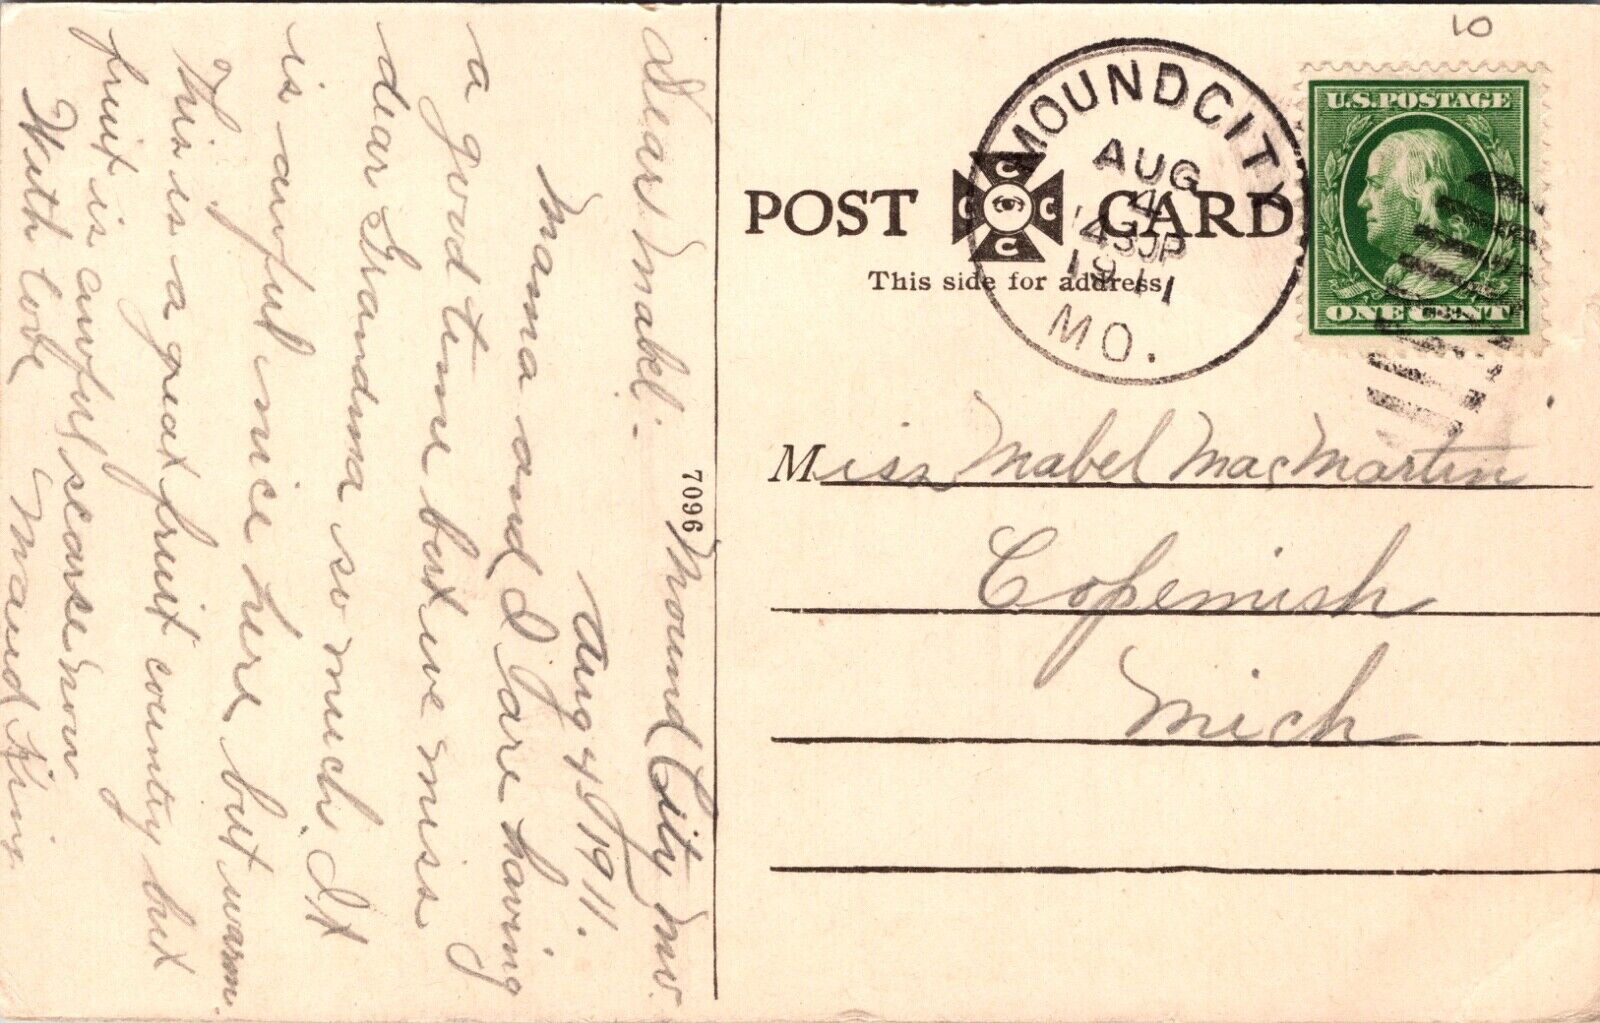 Mound City Mo.
Aug 4, 1911.
Dear Mabel:-
Mama and I are having
a good time but we miss
dear Grandma so much It
is awful nice here but warm.
This is a great fruit country but
fruit is awful scarse now
With love Maud King.
7096
10
MOUND CITY
AUG
4
1911
MO.
U.S. POSTAGE
ONE CENT
POST CARD
C C C C
This side for address
Miss Mabel MacMartin
Copemish
Mich